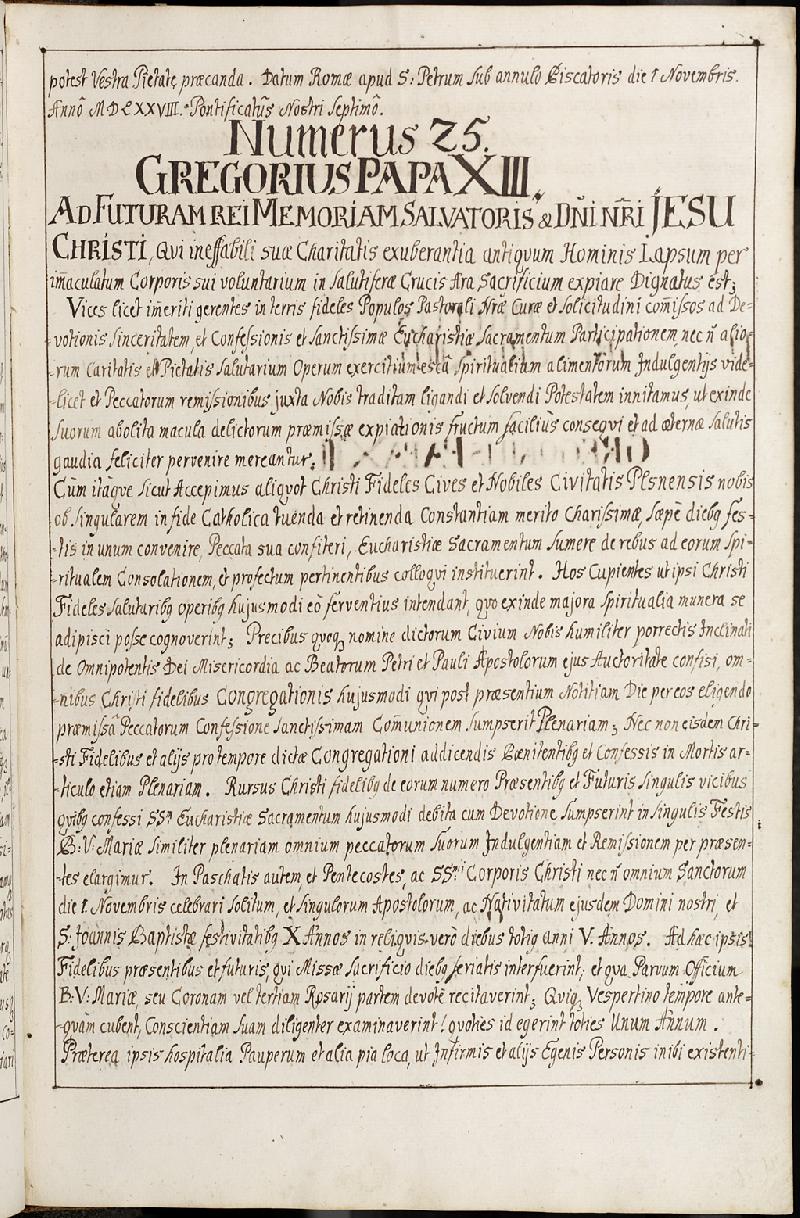 potest Vestra Pietate præcanda. Datum Romæ apud S: Petrum sub annulo Piscatoris die 1 Novembris.
Annô MDLXXVIII. Pontificatûs Nostri Septimô.
Numerus 25.
GREGORIUS PAPA XIII.
AD FUTURAM REI MEMORIAM SALVATORIS & DÑI NRI JESU
CHRISTI, Qvi ineffabili suæ Charitatis exuberantia antiqvum Hominis Lapsum per
im̃aculatum Corporis sui voluntarium in salutiferæ Crucis Ara Sacrificium expiare Dignatus est;
Vices licet im̃eriti gerentes in terris fideles Populos Pastorali Nræ Curæ et Solicitudini com̃issos ad De=
=votionis sinceritatem, et Confessionis et Sanctissimæ Eucharistiæ Sacramentum Participationem, nec ñ alio=
=rum Caritatis et Pietatis Salutarium Operum exercitium escâ spiritualium alimentorum Indulgentijs vide=
=licet et Peccatorum remissionibus juxta Nobis traditam ligandi et solvendi Potestatem innitamus, ut exinde
suorum abolita macula delictorum præmissæ expiationis fructum faciliùs conseqvi et ad æternæ salutis
gaudia feliciter pervenire mereantur.
Cùm itaqve sicut Accepimus aliqvot Christi Fideles Cives et Nobiles Civitatis Plsnensis nobis
ob singularem in fide Catholica tuenda et retinenda Constantiam merito Charissimæ, sæpè diebq fes=
=tis in unum convenire, Peccata sua confiteri, Eucharistiæ Sacramentum sumere de rebus ad eorum Spi=
=ritualem Consolationem, et profectum pertinentibus colloqvi instituerint. Hos Cupientes ut ipsi Christi
Fideles salutaribq operibq hujusmodi eò ferventius intendant, qvo exinde majora spiritualia munera se
adipisci posse cognoverint; Precibus qvoq nomine dictorum Civium Nobis humiliter porrectis Inclinati
de Omnipotentis Dei Misericordia ac Beatorum Petri et Pauli Apostolorum ejus Auctoritate confisi, om=
=nibus Christi fidelibus Congregationis hujusmodi qvi post præsentium Notitiam Die per eos eligendo
præmissâ Peccatorum Confessione Sanctissimam Com̃unionem sumpserit Plenariam; Nec non eisdem Chri=
=sti Fidelibus et alijs pro tempore dictæ Congregationi addicendis Pænitentibq et Confessis in Mortis ar=
=ticulo etiam Plenariam. Rursus Christi fidelibq de eorum numero Præsentibq et Futuris singulis vicibus
qvibq confessi SS. Eucharistiæ Sacramentum hujusmodi debita cum Devotione sumpserint in singulis Festis
B: V: Mariæ similiter plenariam omnium peccatorum suorum Indulgentiam et Remissionem per præsen=
=tes elargimur. In Paschatis autem, et Pentecostes, ac SSmi Corporis Christi nec ñ omnium Sanctorum
die 1 Novembris celebrari solitum, et singulorum Apostolorum, ac Nativitatum ejusdem Domini nostri, et
S: Joannis Baptistæ festivitatibq X Annos in reliqvis verò diebus totiq anni V. Annos. Ad hæc ipsis
Fidelibus præsentibus et futuris, qvi Missæ Sacrificio diebq feriatis interfuerint; et qva Parvum Officium
B: V: Mariæ, seu Coronam vel tertiam Rosarij partem devotè recitaverint; Qviq Vespertino tempore ante=
=qvàm cubent, Conscientiam suam diligenter examinaverint! qvoties id egerint toties Unum Annum.
Præterea ipsis hospitalia Pauperum et alia pia loca, ut Infirmis et alijs Egenis Personis inibi existenti=